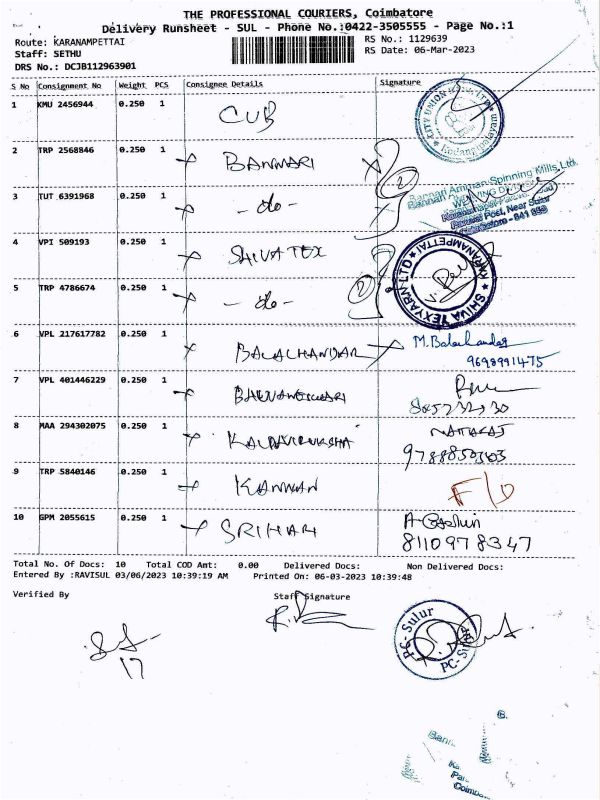 THE PROFESSIONAL COURIERS, Coimbatore
Delivery Runsheet - SUL - Phone No.:0422-3505555 - Page No.:1
Route: KARANAMPETTAI
RS No.: 1129639
Staff: SETHU
RS Date: 06-Mar-2023
DRS No.: DCJB112963901
S No Consignment No Weight PCS Consignee Details Signature
1 KMU 2456944 0.250 1 CUB
CITY UNION
2 TRP 2568846 0.250 1 BANNARI
2
Bannari Amman Spinning Mills Ltd.
3 TUT 6391968 0.250 1 - do -
Post, Near Sulur
Coimbatore - 641
4 VPI 509193 0.250 1 SHIVA TEX
SHIVA TEXYARN LTD ★ KARANAMPETTAI ★
5 TRP 4786674 0.250 1 - do -
2
6 VPL 217617782 0.250 1 BALACHANDAR M. Balachandar
9698991475
7 VPL 401446229 0.250 1
8 MAA 294302075 0.250 1
9 TRP 5840146 0.250 1 KANNAN
10 GPM 2055615 0.250 1 SRIHARI
8110978347
Total No. Of Docs: 10 Total COD Amt: 0.00 Delivered Docs: Non Delivered Docs:
Entered By :RAVISUL 03/06/2023 10:39:19 AM Printed On: 06-03-2023 10:39:48
Verified By Staff Signature
PC-Sulur
PC-Sulur
17
B.
Bann
Ka
Pa
Coimb